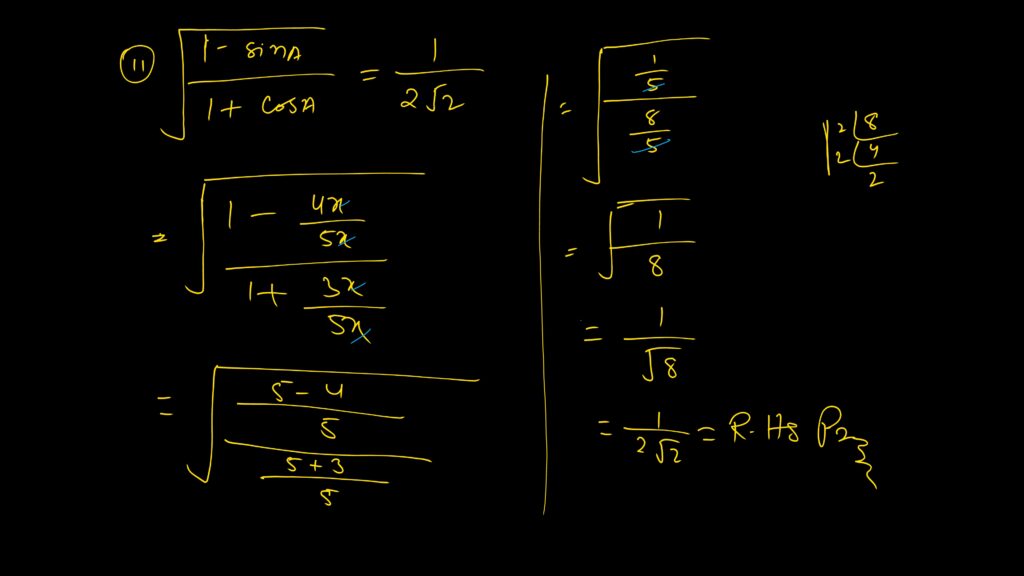 (11) √((1 - sinA)/(1 + cosA)) = 1/(2√2)
= √((1 - 4x/5x)/(1 + 3x/5x))
= √(((5-4)/5)/((5+3)/5))
= √((1/5)/(8/5))
= √(1/8)
= 1/√8
= 1/(2√2) = R.Hs
2 | 8
2 | 4
2